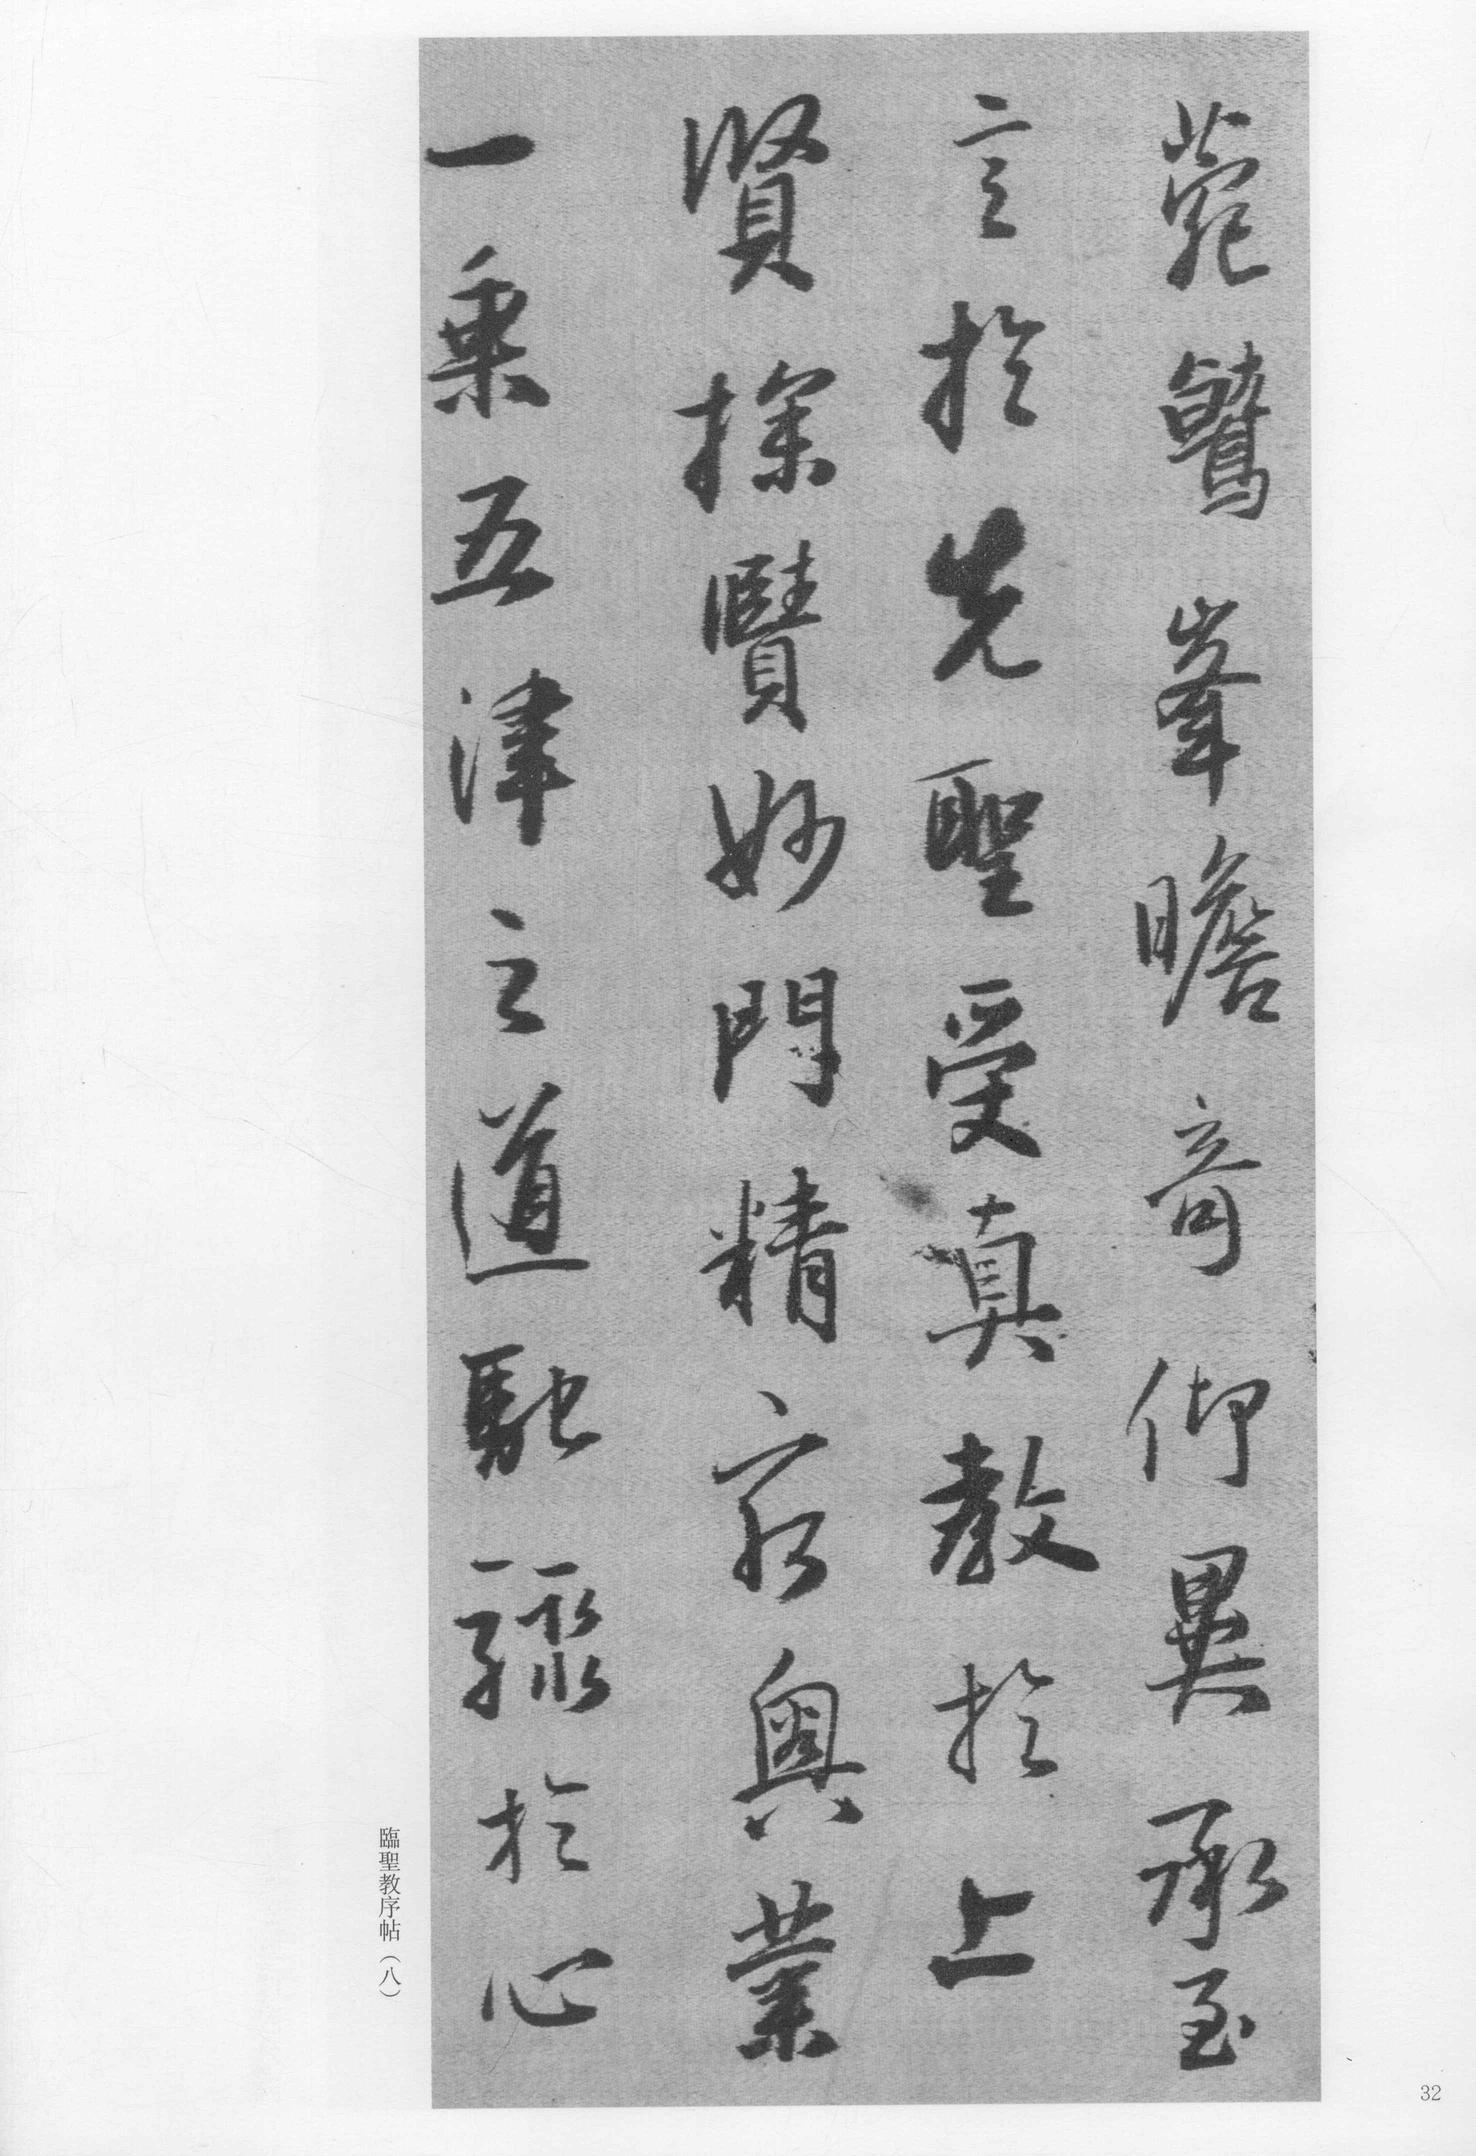 菀鷲峯瞻奇仰異承至
言於先聖受真教於上
賢探賾妙門精窮奧業
一乘五津之道馳驟於心
臨聖教序帖（八）
32